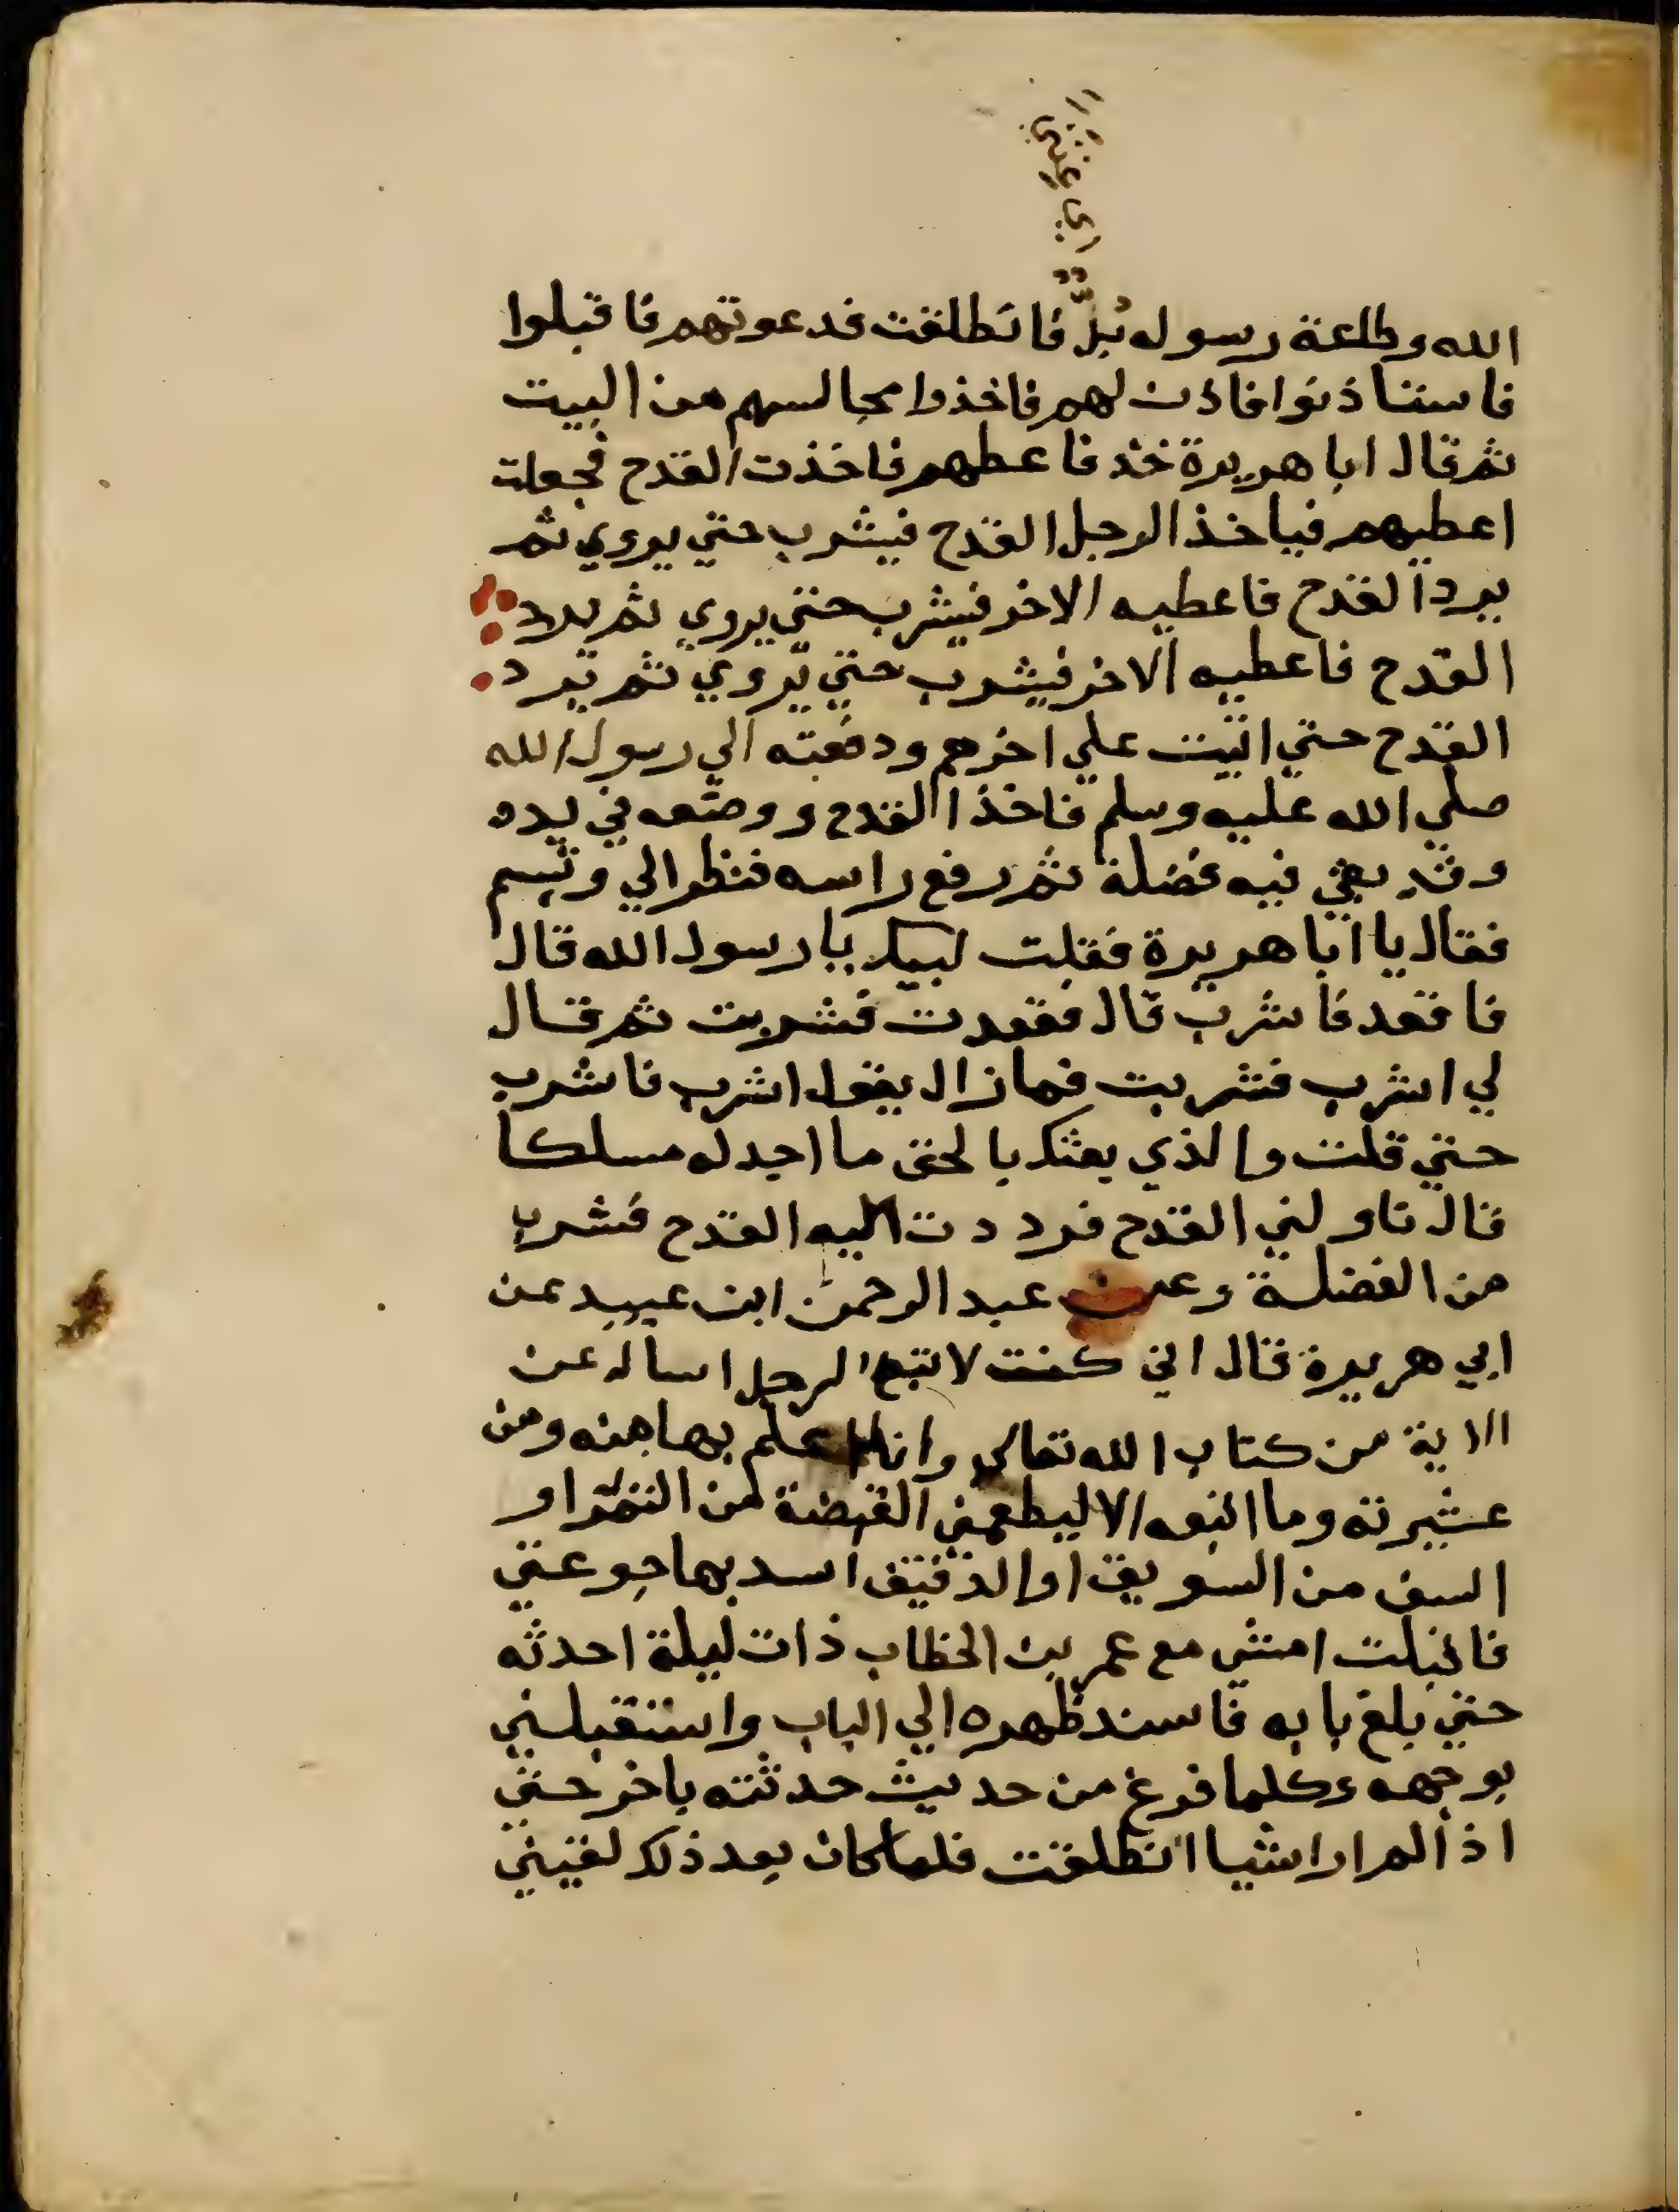 الله وطاعة رسوله بُدٌّ فانطلقت فدعوتهم فاقبلوا
فاستاذنوا فاذن لهم فاخذوا مجالسهم من البيت
ثم قال ابا هريرة خذ فاعطهم فاخذت القدح فجعلت
اعطيهم فياخذ الرجل القدح فيشرب حتي يروي ثم
يرد القدح فاعطيه الاخر فيشرب حتي يروي ثم يرد
القدح فاعطيه الاخر فيشرب حتي يروي ثم يرد
القدح حتي اتيت علي اخرهم ودفعته الي رسول الله
صلي الله عليه وسلم فاخذ القدح ووضعه في يده
وقد بقي فيه فضلة ثم رفع راسه فنظر الي وتبسم
فقال يا ابا هريرة فقلت لبيك يا رسول الله قال
فاقعد فاشرب قال فقعدت فشربت ثم قال
لي اشرب فشربت فما زال يقول اشرب فاشرب
حتي قلت والذي بعثك بالحق ما اجد له مسلكا
قال ناولني القدح فرددت اليه القدح فشرب
من الفضلة وعن عبد الرحمن ابن عبيد عن
ابي هريرة قال اني كنت لاتبع الرجل اساله عن
الاية من كتاب الله تعالي وانا اعلم بها منه ومن
عشيرته وما اتبعه الا ليطعمني القبضة من التمر او
السف من السويق او الدقيق اسد بها جوعتي
فاقبلت امشي مع عمر بن الخطاب ذات ليلة احدثه
حتي بلغ بابه فاسند ظهره الي الباب واستقبلني
بوجهه وكلما فرغ من حديث حدثته باخر حتي
اذا لم ار اشيا انطلقت فلما كان بعد ذلك لقيني